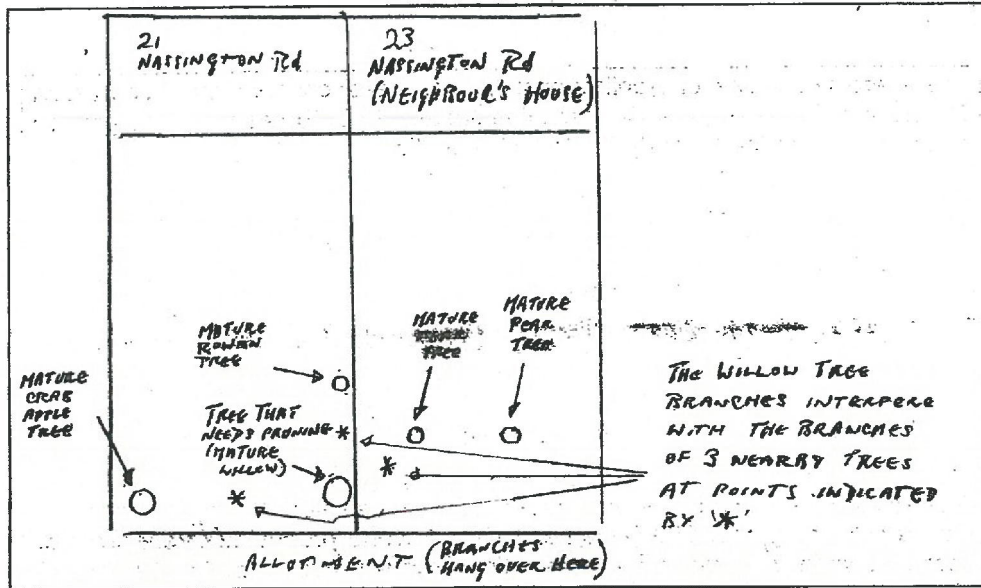 21
NASSINGTON Rd
23
NASSINGTON Rd
(NEIGHBOUR'S HOUSE)
MATURE
ROWAN
TREE
MATURE
TREE
MATURE
PEAR
TREE
MATURE
CRAB
APPLE
TREE
TREE THAT
NEEDS PRUNING *
(MATURE
WILLOW)
*
*
THE WILLOW TREE
BRANCHES INTERFERE
WITH THE BRANCHES
OF 3 NEARBY TREES
AT POINTS INDICATED
BY '*'.
ALLOTMENT (BRANCHES
HANG OVER HERE)